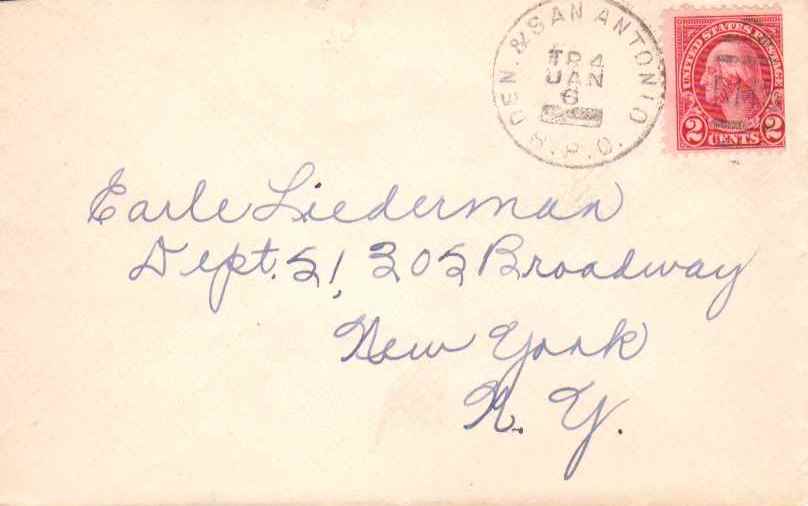 DEN. & SAN ANTONIO
TR 4
JAN
6
R.P.O.
UNITED STATES POSTAGE
2 CENTS 2
Earle Liederman
Dept. 51, 305 Broadway
New York
N. Y.